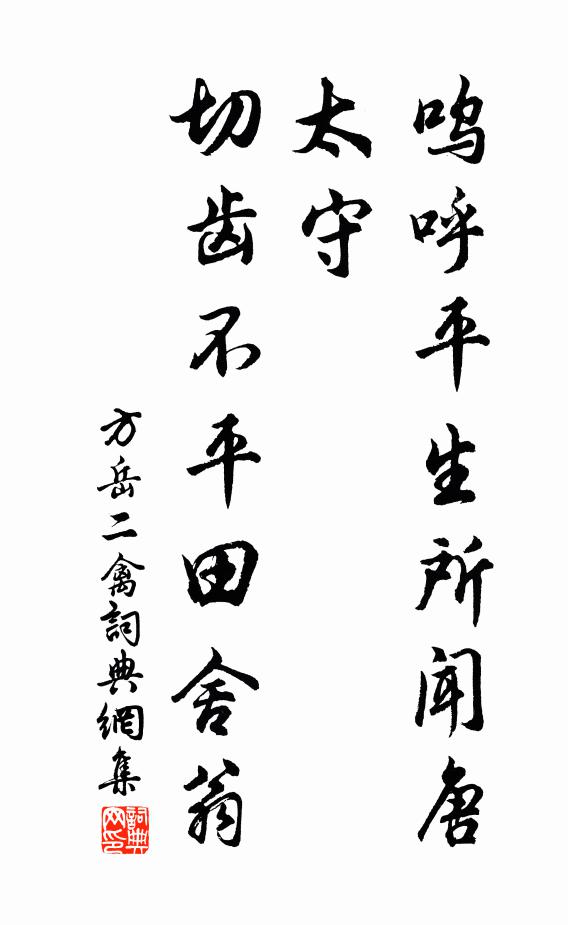 呜呼平生所闻唐
太守
切齿不平田舍翁
方岳二禽詞典網集
詞典
网印